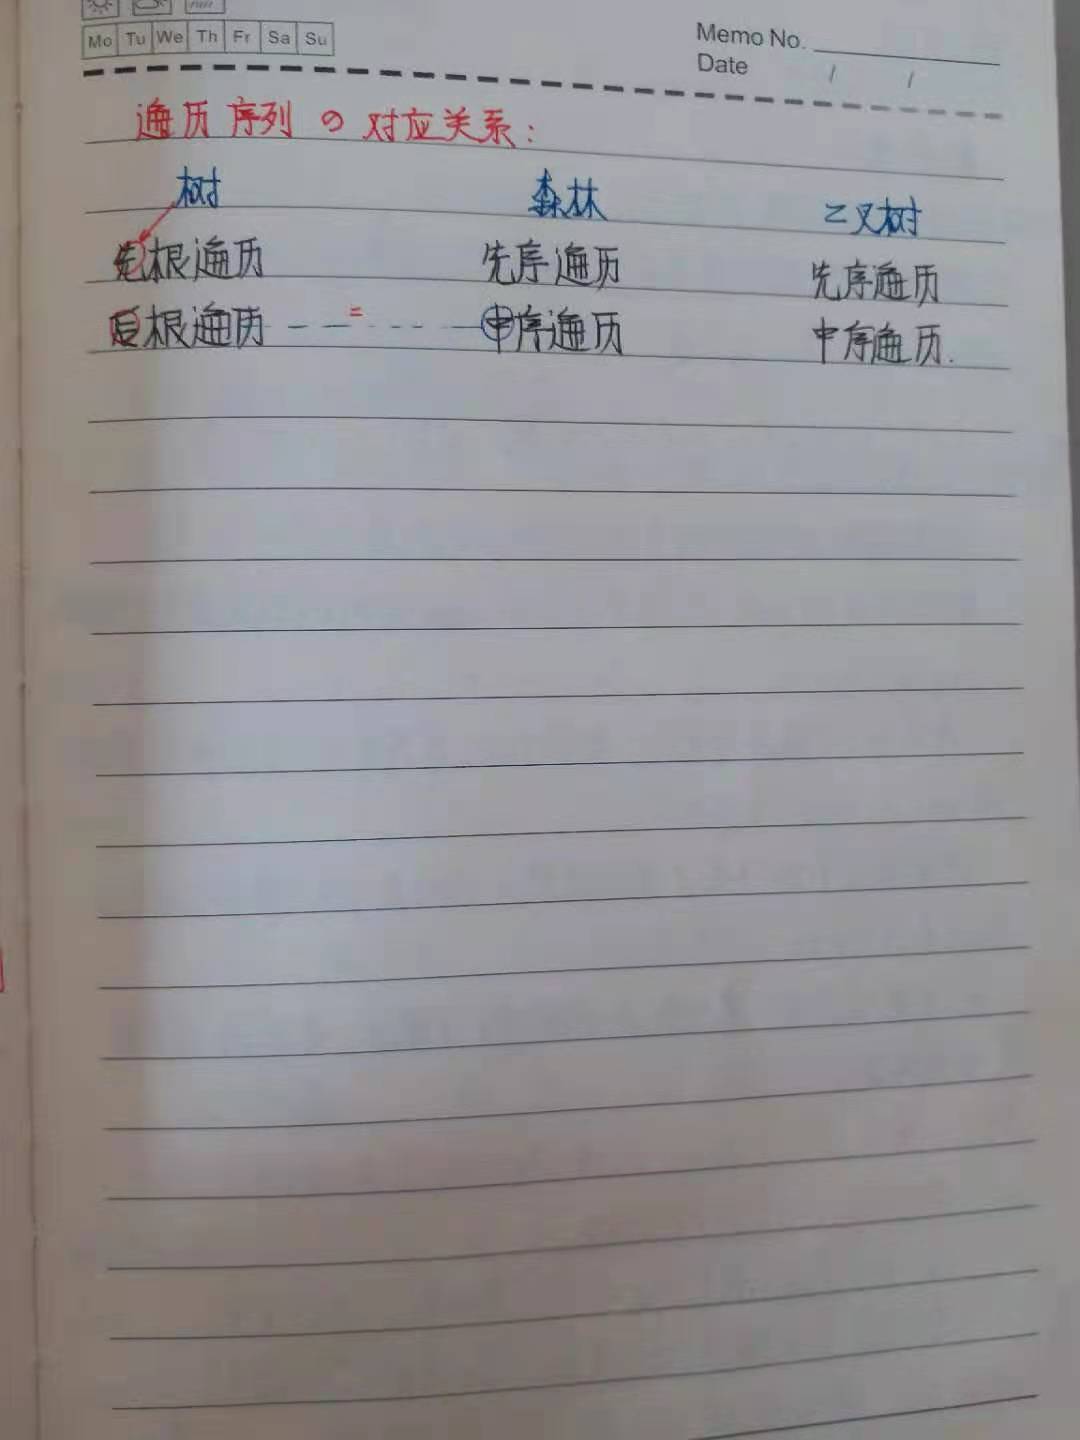 Mo Tu We Th Fr Sa Su
Memo No.
Date / /
遍历序列の对应关系:
树 森林 二叉树
先根遍历 先序遍历 先序遍历
后根遍历 = 中序遍历 中序遍历.